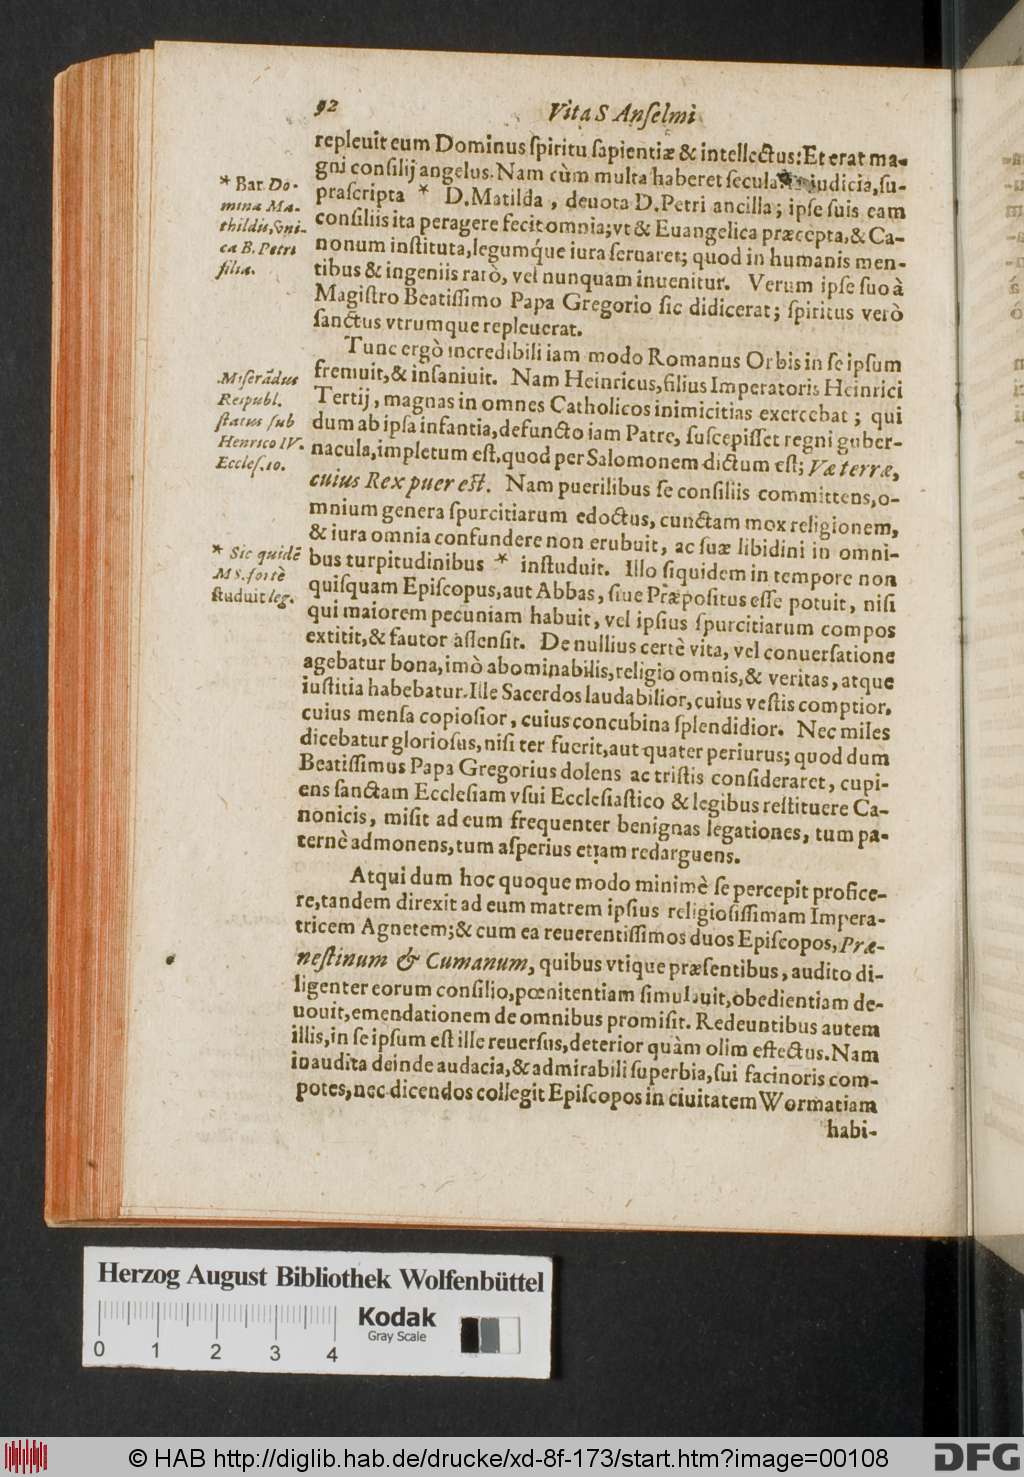 92
Vita S Anſelmi
repleuit eum Dominus ſpiritu ſapientiæ & intellectus: Et erat ma-
gni conſilij angelus. Nam cùm multa haberet ſecula iudicia, ſu-
praſcripta * D. Matilda, deuota D. Petri ancilla; ipſe ſuis eam
conſiliis ita peragere fecit omnia; vt & Euangelica præcepta, & Ca-
nonum inſtituta, legumq́ue iura ſeruaret; quod in humanis men-
tibus & ingeniis rarò, vel nunquam inuenitur. Verum ipſe ſuo à
Magiſtro Beatiſſimo Papa Gregorio ſic didicerat; ſpiritus verò
ſanctus vtrumque repleuerat.
* Bar. Do-
mina Ma-
thildis, vni-
ca B. Petri
filia.
Tunc ergò incredibili iam modo Romanus Orbis in ſe ipſum
fremuit, & inſaniuit. Nam Heinricus, filius Imperatoris Heinrici
Tertij, magnas in omnes Catholicos inimicitias exercebat; qui
dum ab ipſa infantia, defuncto iam Patre, ſuſcepiſſet regni guber-
nacula, impletum eſt, quod per Salomonem dictum eſt; Væ terræ,
cuius Rex puer eſt. Nam puerilibus ſe conſiliis committens, o-
mnium genera ſpurcitiarum edoctus, cunctam mox religionem,
& iura omnia confundere non erubuit, ac ſuæ libidini in omni-
bus turpitudinibus * inſtuduit. Illo ſiquidem in tempore non
quiſquam Epiſcopus, aut Abbas, ſiue Præpoſitus eſſe potuit, niſi
qui maiorem pecuniam habuit, vel ipſius ſpurcitiarum compos
extitit, & fautor aſſenſit. De nullius certè vita, vel conuerſatione
agebatur bona, imò abominabilis, religio omnis, & veritas, atque
iuſtitia habebatur. Ille Sacerdos laudabilior, cuius veſtis comptior,
cuius menſa copioſior, cuius concubina ſplendidior. Nec miles
dicebatur glorioſus, niſi ter fuerit, aut quater periurus; quod dum
Beatiſſimus Papa Gregorius dolens ac triſtis conſideraret, cupi-
ens ſanctam Eccleſiam vſui Eccleſiaſtico & legibus reſtituere Ca-
nonicis, miſit ad eum frequenter benignas legationes, tum pa-
ternè admonens, tum aſperius etiam redarguens.
Miſerãdus
Reipubl.
ſtatus ſub
Henrico IV.
Eccleſ. 10.
* Sic quidẽ
MS. fortè
ſtuduit leg.
Atqui dum hoc quoque modo minimè ſe percepit profice-
re, tandem direxit ad eum matrem ipſius religioſiſſimam Impera-
tricem Agnetem; & cum ea reuerentiſſimos duos Epiſcopos, Præ-
neſtinum & Cumanum, quibus vtique præſentibus, audito di-
ligenter eorum conſilio, pœnitentiam ſimulauit, obedientiam de-
uouit, emendationem de omnibus promiſit. Redeuntibus autem
illis, in ſe ipſum eſt ille reuerſus, deterior quàm olim effectus. Nam
inaudita deinde audacia, & admirabili ſuperbia, ſui facinoris com-
potes, nec dicendos collegit Epiſcopos in ciuitatem Wormatiam
habi-
Herzog August Bibliothek Wolfenbüttel
Kodak
Gray Scale
0 1 2 3 4
© HAB http://diglib.hab.de/drucke/xd-8f-173/start.htm?image=00108
DFG